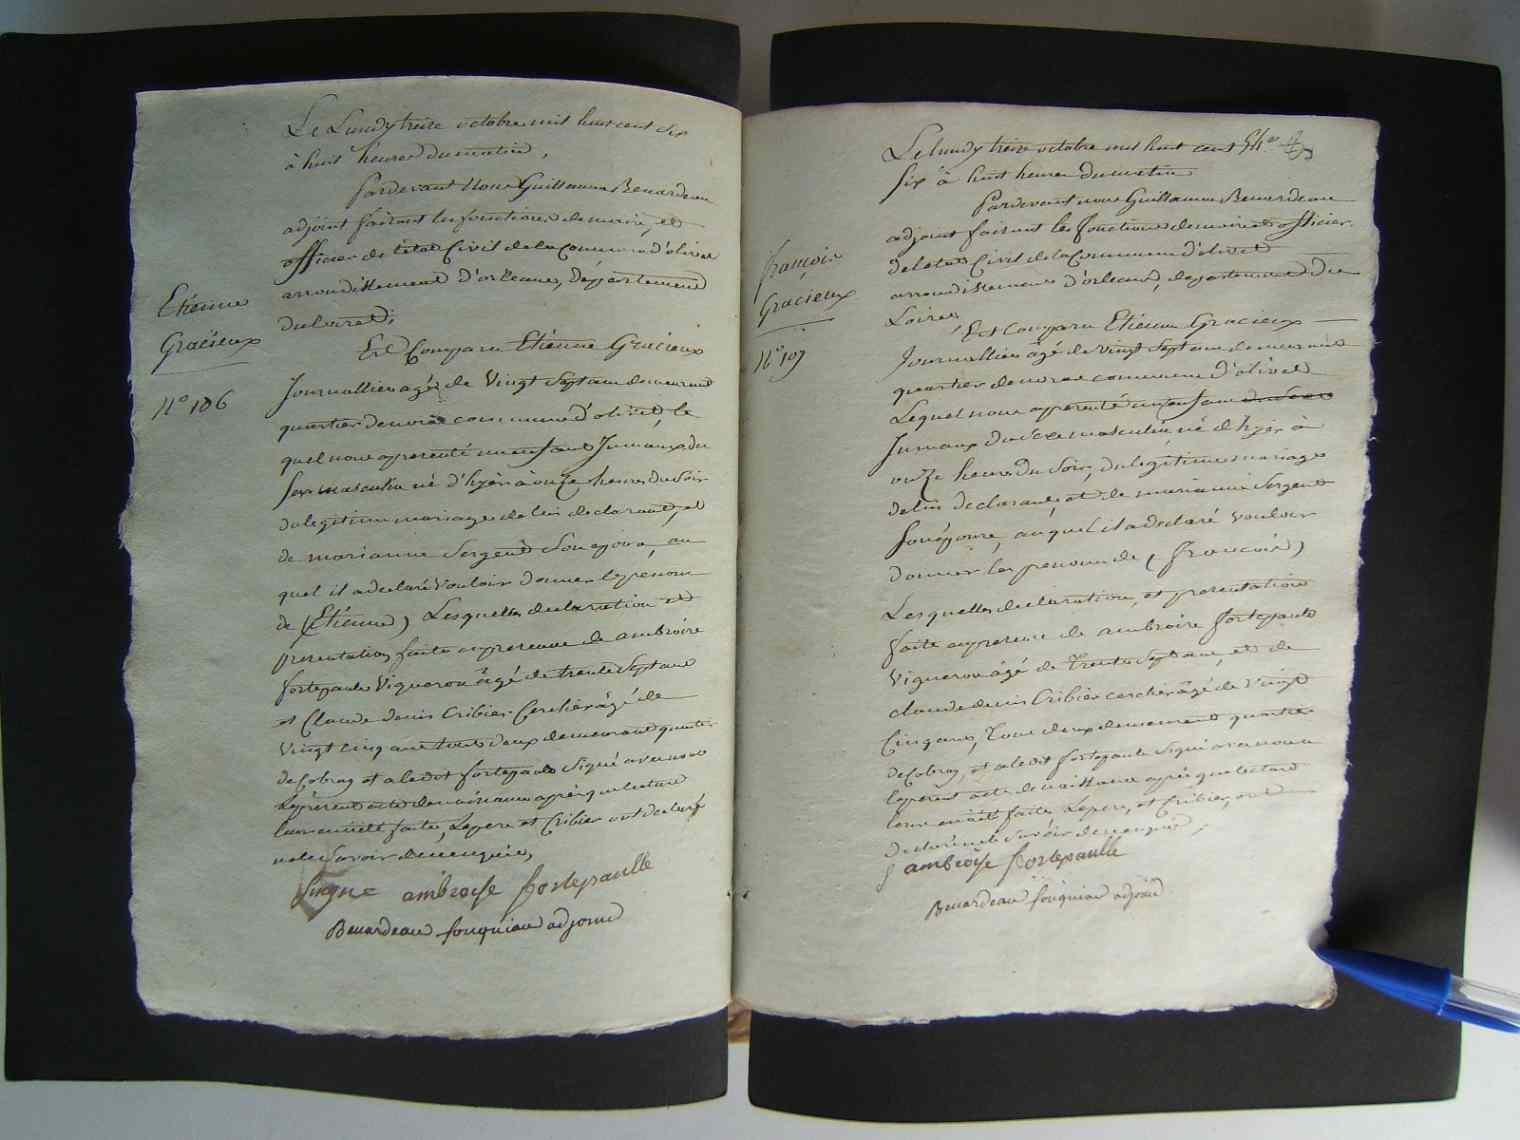 Le Lundy treize octobre mil huit cent six
à huit heures du matin,
Pardevant Nous Guillaume Benardeau
adjoint faisant les fonctions de maire, et
officier de l'état Civil de la Commune d'olivet
arrondissement d'orleans, Département
du Loiret;
Etienne
Gracieux
N° 106
Est Comparu Etienne Gracieux
Journallier agé de Vingt Sept ans demeurant
quartier de commune d'olivet, le
quel nous a presenté un enfant Jumeaux du
Sexe masculin né d'hyer à onze heures du Soir
du legitime mariage de lui declarant, et
de marianne Sergent Son epouse, au
quel il a declaré Vouloir donner le prenom
de (Etienne) Lesquelles declaration et
presentation faite en presence de ambroise
fortepaule Vigneron âgé de trente Sept ans
et Claude denis Cribier Cerclier âgé de
Vingt cinq ans tous deux demeurant quartier
de Cobray et a ledit fortepaule Signé avec nous
Le présent acte de naissance après que lecture
leur en a été faite, Le pere et Cribier ont declaré
ne le Savoir de ce enquis,
Signe ambroise fortepaulle
Benardeau fouqniau adjoint
Le lundy treize octobre mil huit cent 54.
Six à huit heures du matin
Pardevant nous Guillaume Benardeau
adjoint faisant les fonctions de maire et officier
de l'etat Civil de la Commune d'olivet
arrondissement d'orleans, departement du
Loiret
françois
Gracieux
N° 107
Est Comparu Etienne Gracieux
Journallier âgé de vingt Sept ans demeurant
quartier de commune d'olivet
Lequel nous a presenté un enfant
Jumaux du Sexe masculin né d'hyer à
onze heures du Soir, du legitime mariage
de lui declarant, et de marianne Sergent
Son épouse, auquel il a declaré Vouloir
donner le prenom de (françois)
Lesquelles declaration, et presentation
faite en presence de ambroise fortepaule
Vigneron âgé de Trente Sept ans, et de
claude denis Cribier cerclier âgé de Vingt
Cinq ans, Tous deux demeurant quartier
de Cobray, et a ledit fortepaule Signé avec nous
le present acte de naissance après que lecture
leur en a été faite Le pere, et Cribier, ont
declaré ne le Savoir de ce enquis,
ambroise fortepaulle
Benardeau fouqniau adjoint